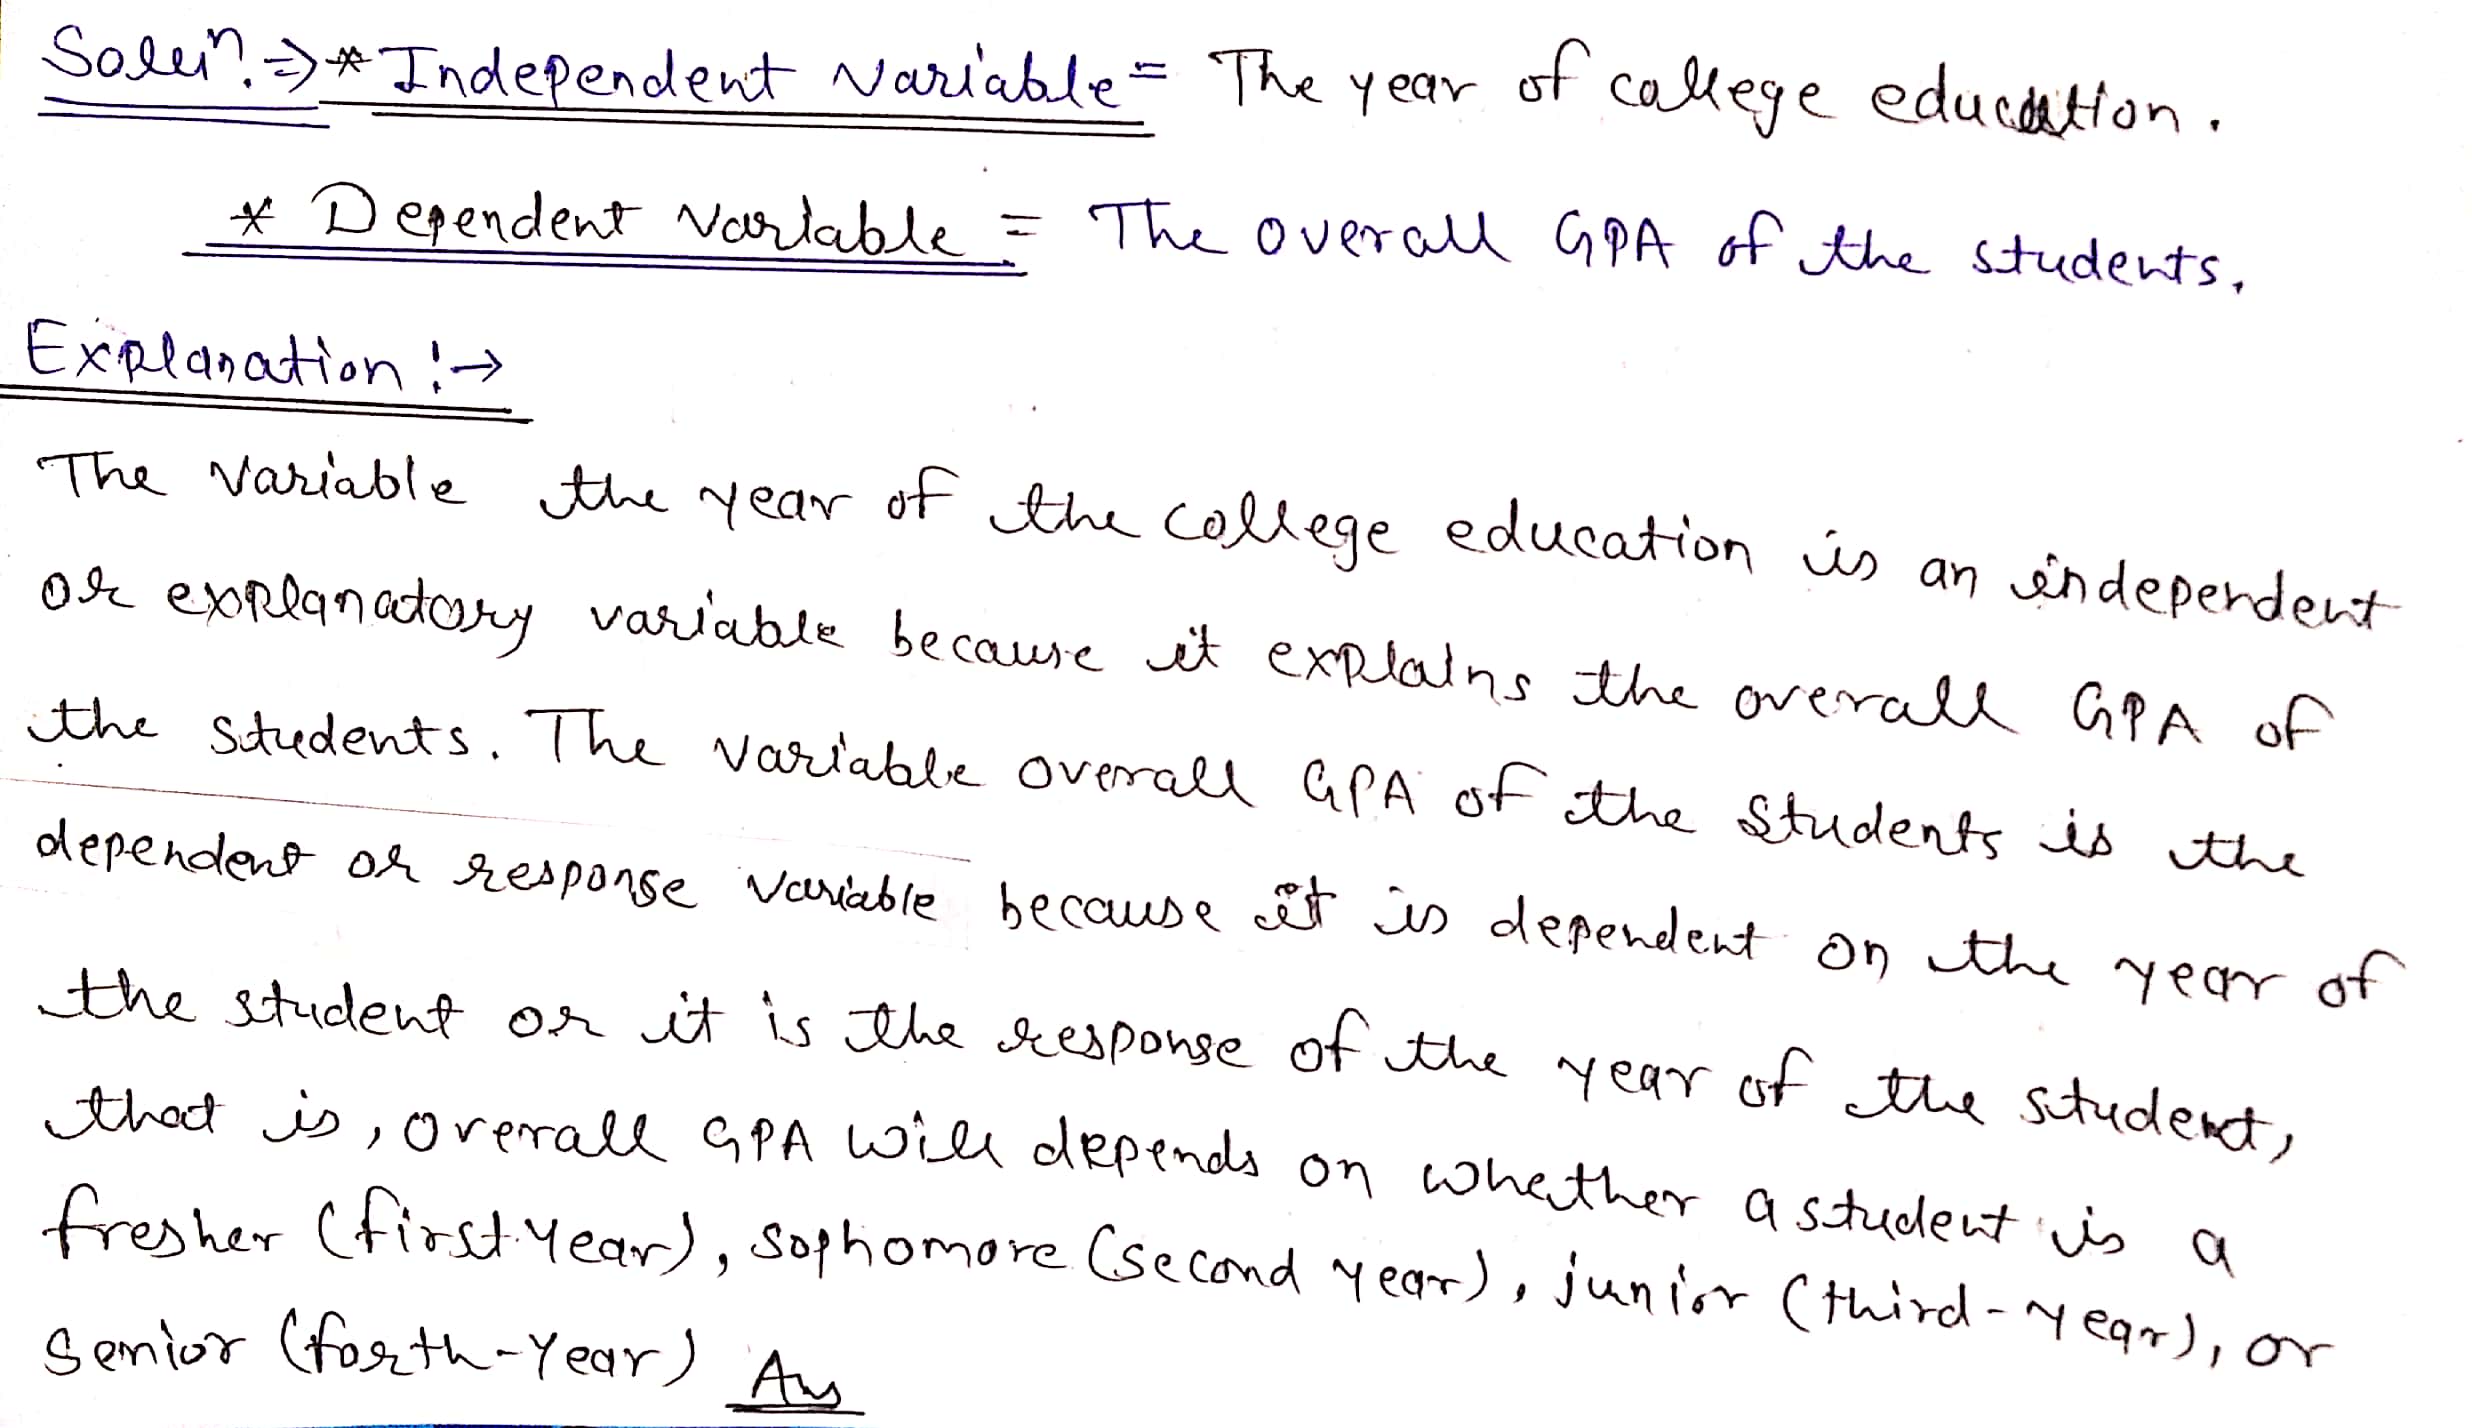 Soluⁿ. ⇒ * Independent Variable = The year of college education.
* Dependent Variable = The overall GPA of the students.
Explanation :→
The Variable the year of the college education is an independent
or explanatory variable because it explains the overall GPA of
the students. The variable overall GPA of the students is the
dependent or response variable because it is dependent on the year of
the student or it is the response of the year of the student,
that is, overall GPA will depends on whether a student is a
fresher (first year), sophomore (second year), junior (third-year), or
senior (forth-year) Ans